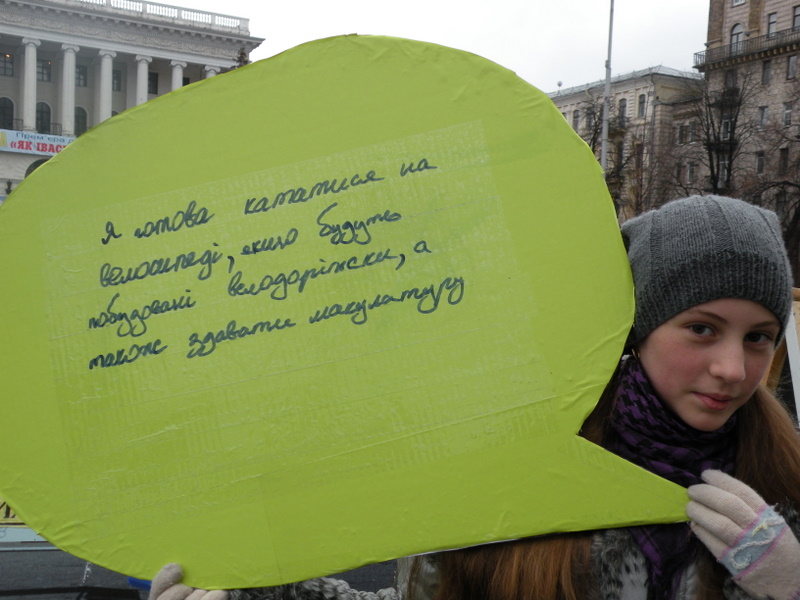 «ЯК ІВАС
Я готова кататися на
велосипеді, якщо будуть
побудовані велодоріжки, а
також здавати макулатуру